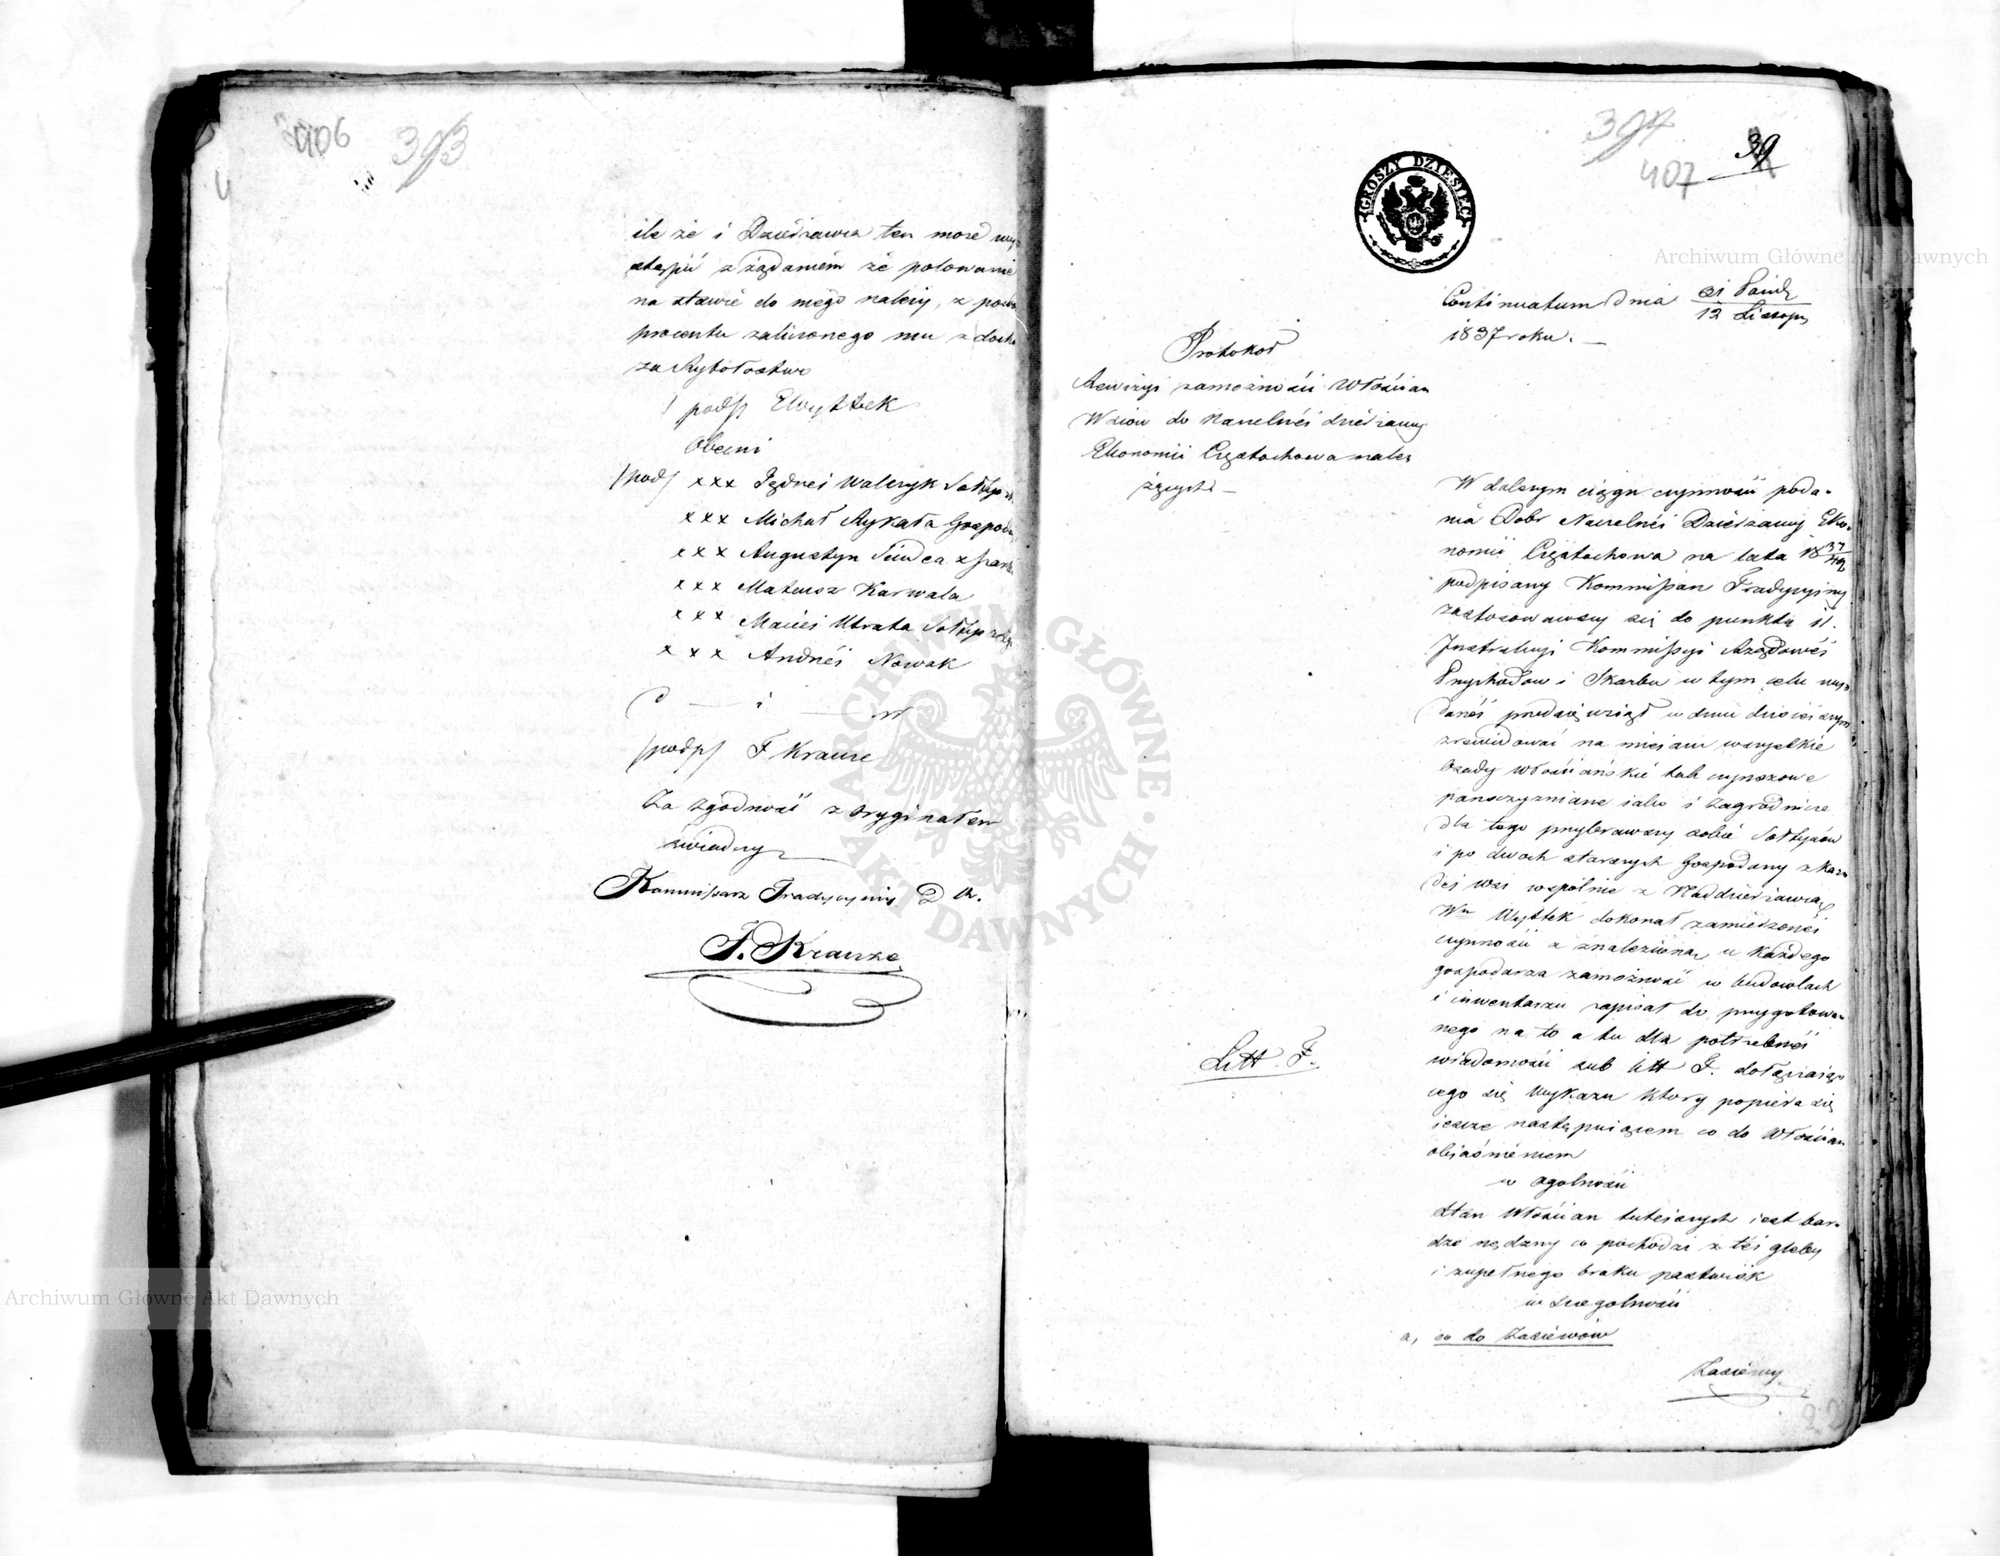 406 393
ile że i Dzierzawca ten może wy
stąpić z żądaniem że polowanie
na stawie do niego należy, z powo
procentu zaliczonego mu z doch
za Rybołostwo
/ podp/ EWyttek
Obecni
/pod/ xxx Jędrzei Waleryk Sołtys
xxx Michał Rykała Gospod
xxx Augustyn
xxx Mateusz Karwala
xxx Maciei Utrata Sołtys
xxx Andrzéi Nowak
C — i — m
/podp/ F Krause
Za zgodność z oryginałem
świadczy
Kommissarz Tradycyiny D. R.
F. Krauze
394
407
39
GROSZY DZIESIĘĆ
Continuatum dnia 31 Paźdz
12 Listop
1837 roku. —
Protokoł
Rewizyi zamożności Włościan
Wsiów do Naczelnéi dzierzawy
Ekonomii Częstochowa należ
żących —
W dalszym ciągu czynności poda-
nia Dobr Naczelnéi Dzierzawy Eko-
nomii Częstochowa na lata 1837/49
podpisany Kommissarz Tradycyiny
zastosowawszy się do punktu 11.
Instrukcyi Kommissyi Rządowéi
Przychodow i Skarbu w tym celu wy-
danéi przedsięwziął w dniu dzisieiszym
zrewidować na mieiscu wszystkie
Osady włościańskie tak czynszowe
pańszczyzniane iako i zagrodnicze
dla tego przybrawszy sobie Sołtysów
i po dwóch starszych Gospodarzy z każ-
déi wsi wspólnie z Naddzierzawcą
Wm Wyttek dokonał zamierzonéi
czynności a znalezioną u każdego
gospodarza zamożność w budowlach
i inwentarzu zapisał do przygotowa-
nego na to a tu dla potrzebnéi
wiadomości sub litt F. dołączaią-
cego się Wykazu ktory popiera się
ieszcze następuiącem co do Włościan
obiaśnieniem
Litt. F.
w ogolności
Stan Włościan tuteiszych iest bar-
dzo nędzny co pochodzi z téi gleby
i zupełnego braku pastwisk
w szczegolności
a, co do Zasiéwów
Zasiéwy